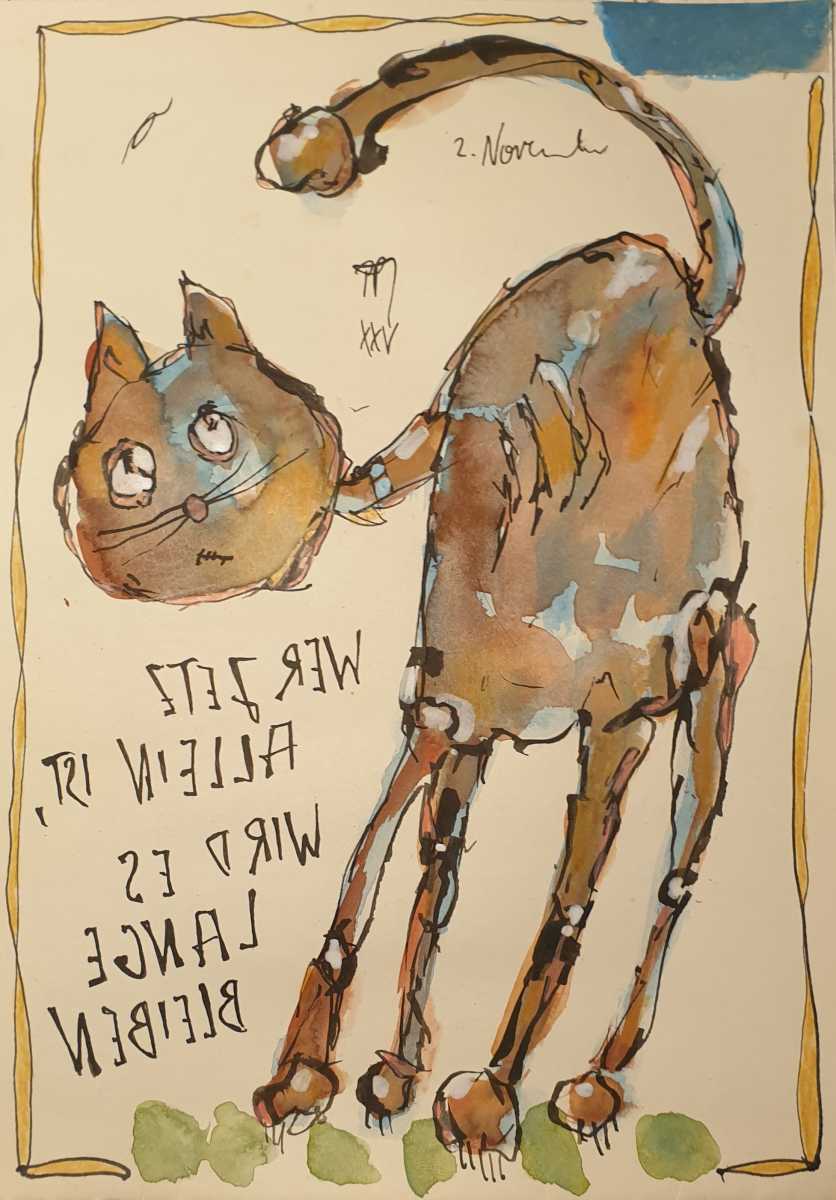 2. November
XXV
WER JETZ
ALLEIN IST,
WIRD ES
LANGE
BLEIBEN